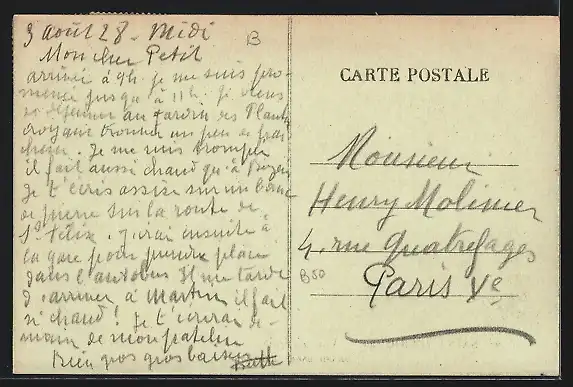 3 août 28 - Midi
Mon cher Petit
arrivée à 9h. je me suis pro-
menée jusqu'à 11h. je viens
déjeuner au Jardin des Plantes
croyant trouver un peu de fraî-
cheur. Je me suis trompée
il fait aussi chaud qu'à
Je t'écris assise sur un banc
de pierre sur la route de
St Félix. J'irai ensuite à
la gare pour prendre place
dans l'autobus. Il me tarde
d'arriver à Martrin, il fait
si chaud! Je t'écrirai de-
main de mon patelin
Bien gros gros baisers
B
CARTE POSTALE
Monsieur
Henry Molinier
4, rue Quatrefages
Paris Ve
B50